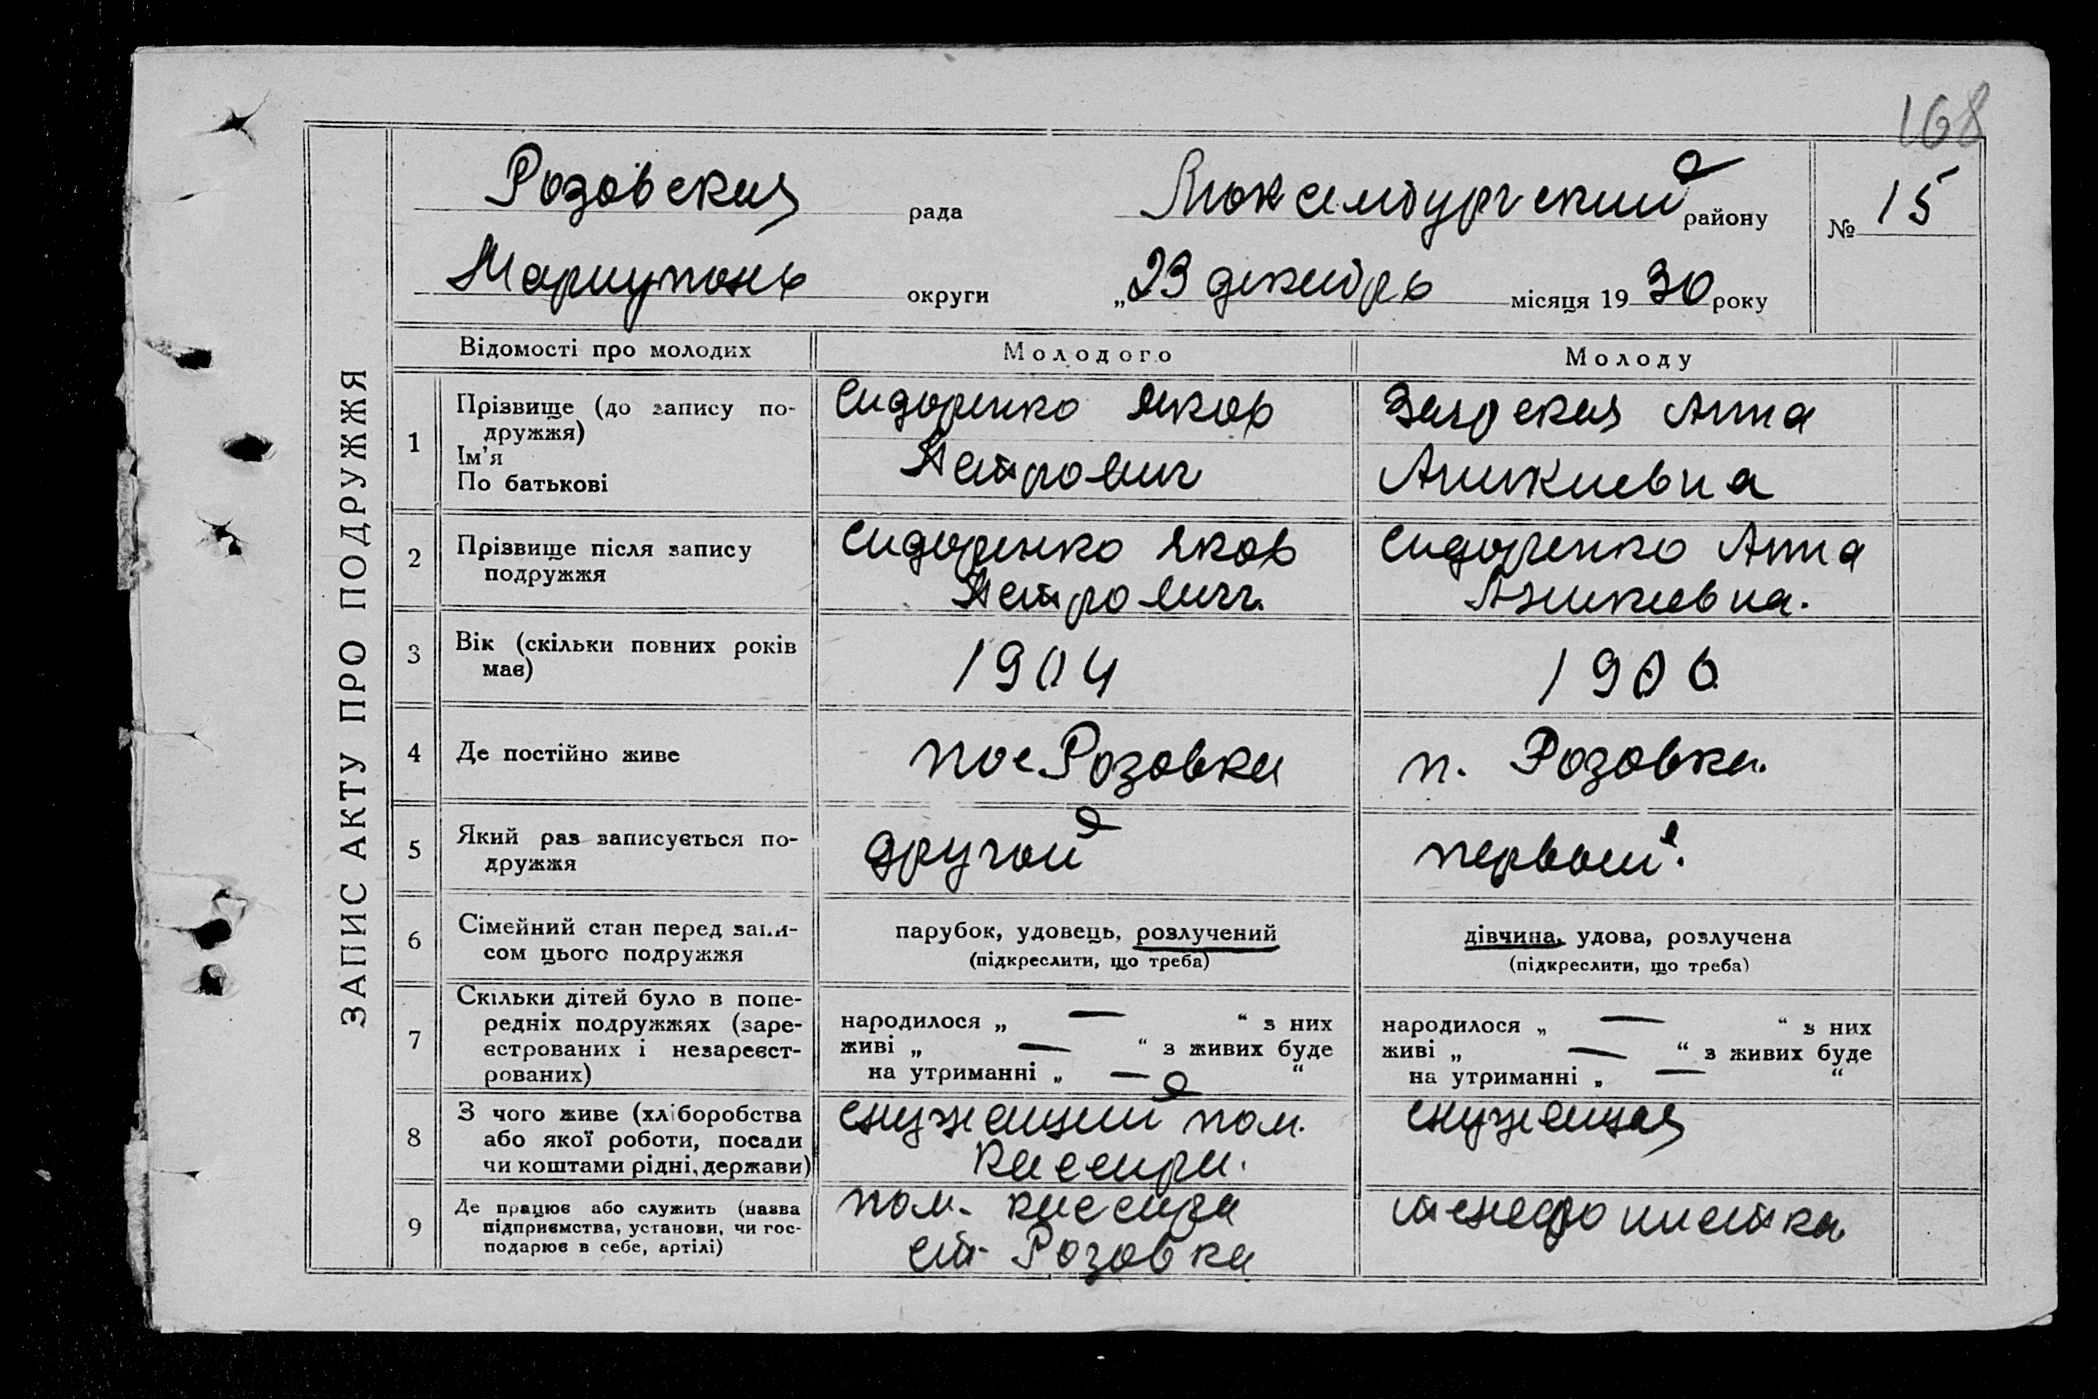 168
Розовская рада Люксембургский району № 15
Мариуполь округи „23 декабрь місяця 1930 року
ЗАПИС АКТУ ПРО ПОДРУЖЖЯ
Відомості про молодих Молодого Молоду
1 Прізвище (до запису по-
дружжя)
Ім'я
По батькові
Сидоренко Яков
Петрович
Анна
Аникиевна
2 Прізвище після запису
подружжя
Сидоренко Яков
Петрович
Сидоренко Анна
Аникиевна.
3 Вік (скільки повних років
має)
1904
1906
4 Де постійно живе
пос Розовка
п. Розовка.
5 Який раз записується по-
дружжя
другой
первый.
6 Сімейний стан перед запи-
сом цього подружжя
парубок, удовець, розлучений
(підкреслити, що треба)
дівчина, удова, розлучена
(підкреслити, що треба)
7 Скільки дітей було в попе-
редніх подружжях (заре-
єстрованих і незареєст-
рованих)
народилося „ — “ з них
живі „ — “ з живих буде
на утриманні „ — “
народилося „ — “ з них
живі „ — “ з живих буде
на утриманні „ — “
8 З чого живе (хліборобства
або якої роботи, посади
чи коштами рідні, держави)
служащий пом.
кассира.
служащая
9 Де працює або служить (назва
підприємства, установи, чи гос-
подарює в себе, артілі)
пом. кассира
ст. Розовка